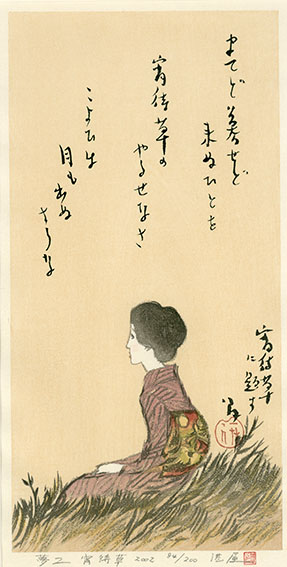 まてど暮せど
来ぬひとを
宵待草の
やるせなさ
こよひは
月も出ぬ
さうな
宵待草
に題す
夢二 宵待草 2002 94/200 港屋